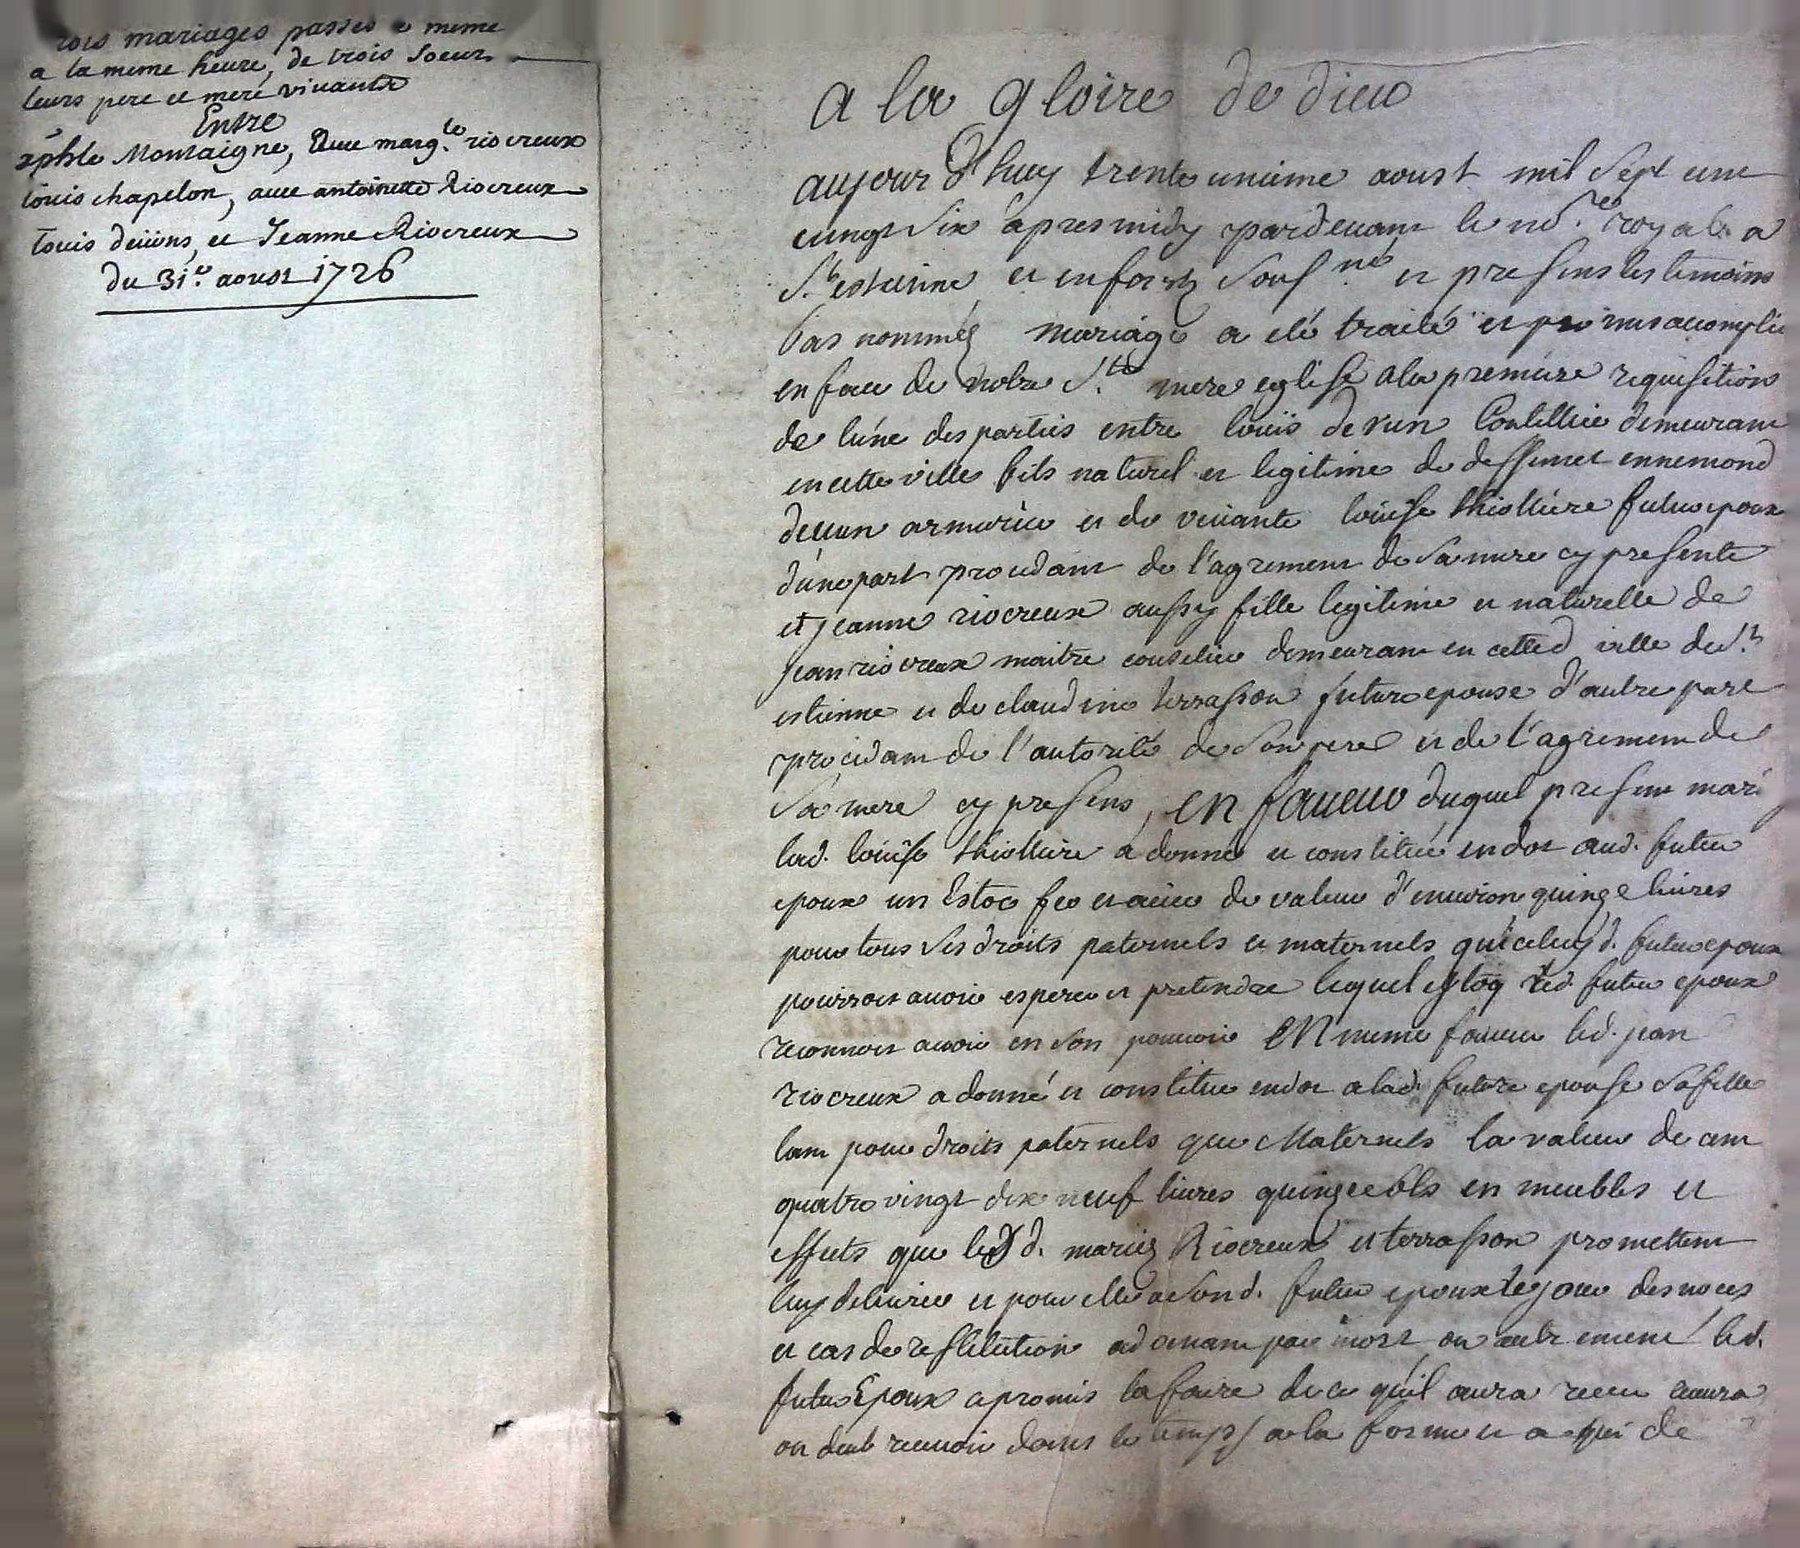 trois mariages passés a meme
a la meme heure, de trois Soeurs
leurs pere et mere vivants
Entre
Montaigne, avec marg.te riocreux
Louis chapelon, avec antoinette Riocreux
Louis devuns, et Jeanne Riocreux
du 31.e aoust 1726
a la gloire de dieu
aujourd'huy trente unieme aoust mil Sept cent
vingt Six apres midy pardevant le no.re royal a
S.t estienne et en forest Sous.né et presens les temoins
bas nommés mariage a eté traité et promis accomplir
en face de notre S.te mere eglise a la premiere requisition
de l'une des parties entre louis devun Coutellier demeurant
en cette ville fils naturel et legitime de deffunct ennemond
devun armurier et de vivante louise thiolliere futur epoux
d'une part procedant de l'agrement de Sa mere cy presente
et jeanne riocreux aussy fille legitime et naturelle de
jean riocreux maitre coutelier demeurant en cetted. ville de S.t
estienne et de claudine terrasson future epouse d'autre part
procedant de l'autorité de Son pere et de l'agrement de
Sa mere cy presens, en faveur duquel present mari
lad. louise thiolliere a donné et constitué en dot aud. futur
epoux un Estoc fer et acier de valeur d'environ quinze livres
pour tous Ses droits paternels et maternels que celuy d. futur epoux
pourroit avoir esperer et pretendre lequel estoq led. futur epoux
reconnoit avoir en Son pouvoir EN meme faveur led. jean
riocreux a donné et constitué en dot a lad. future epouse Sa fille
tant pour droits paternels que Maternels la valeur de cent
quatre vingt dix neuf livres quinze sols en meubles et
effets que lesd. mariez Riocreux et terrasson promettent
luy delivrer et pour elle a Sond. futur epoux le jour des noces
et cas de restitution advenant par mort ou autrement led.
futur Epoux a promis la faire de ce qu'il aura receu
ou deub recevoir dans le temps a la forme et a qui de